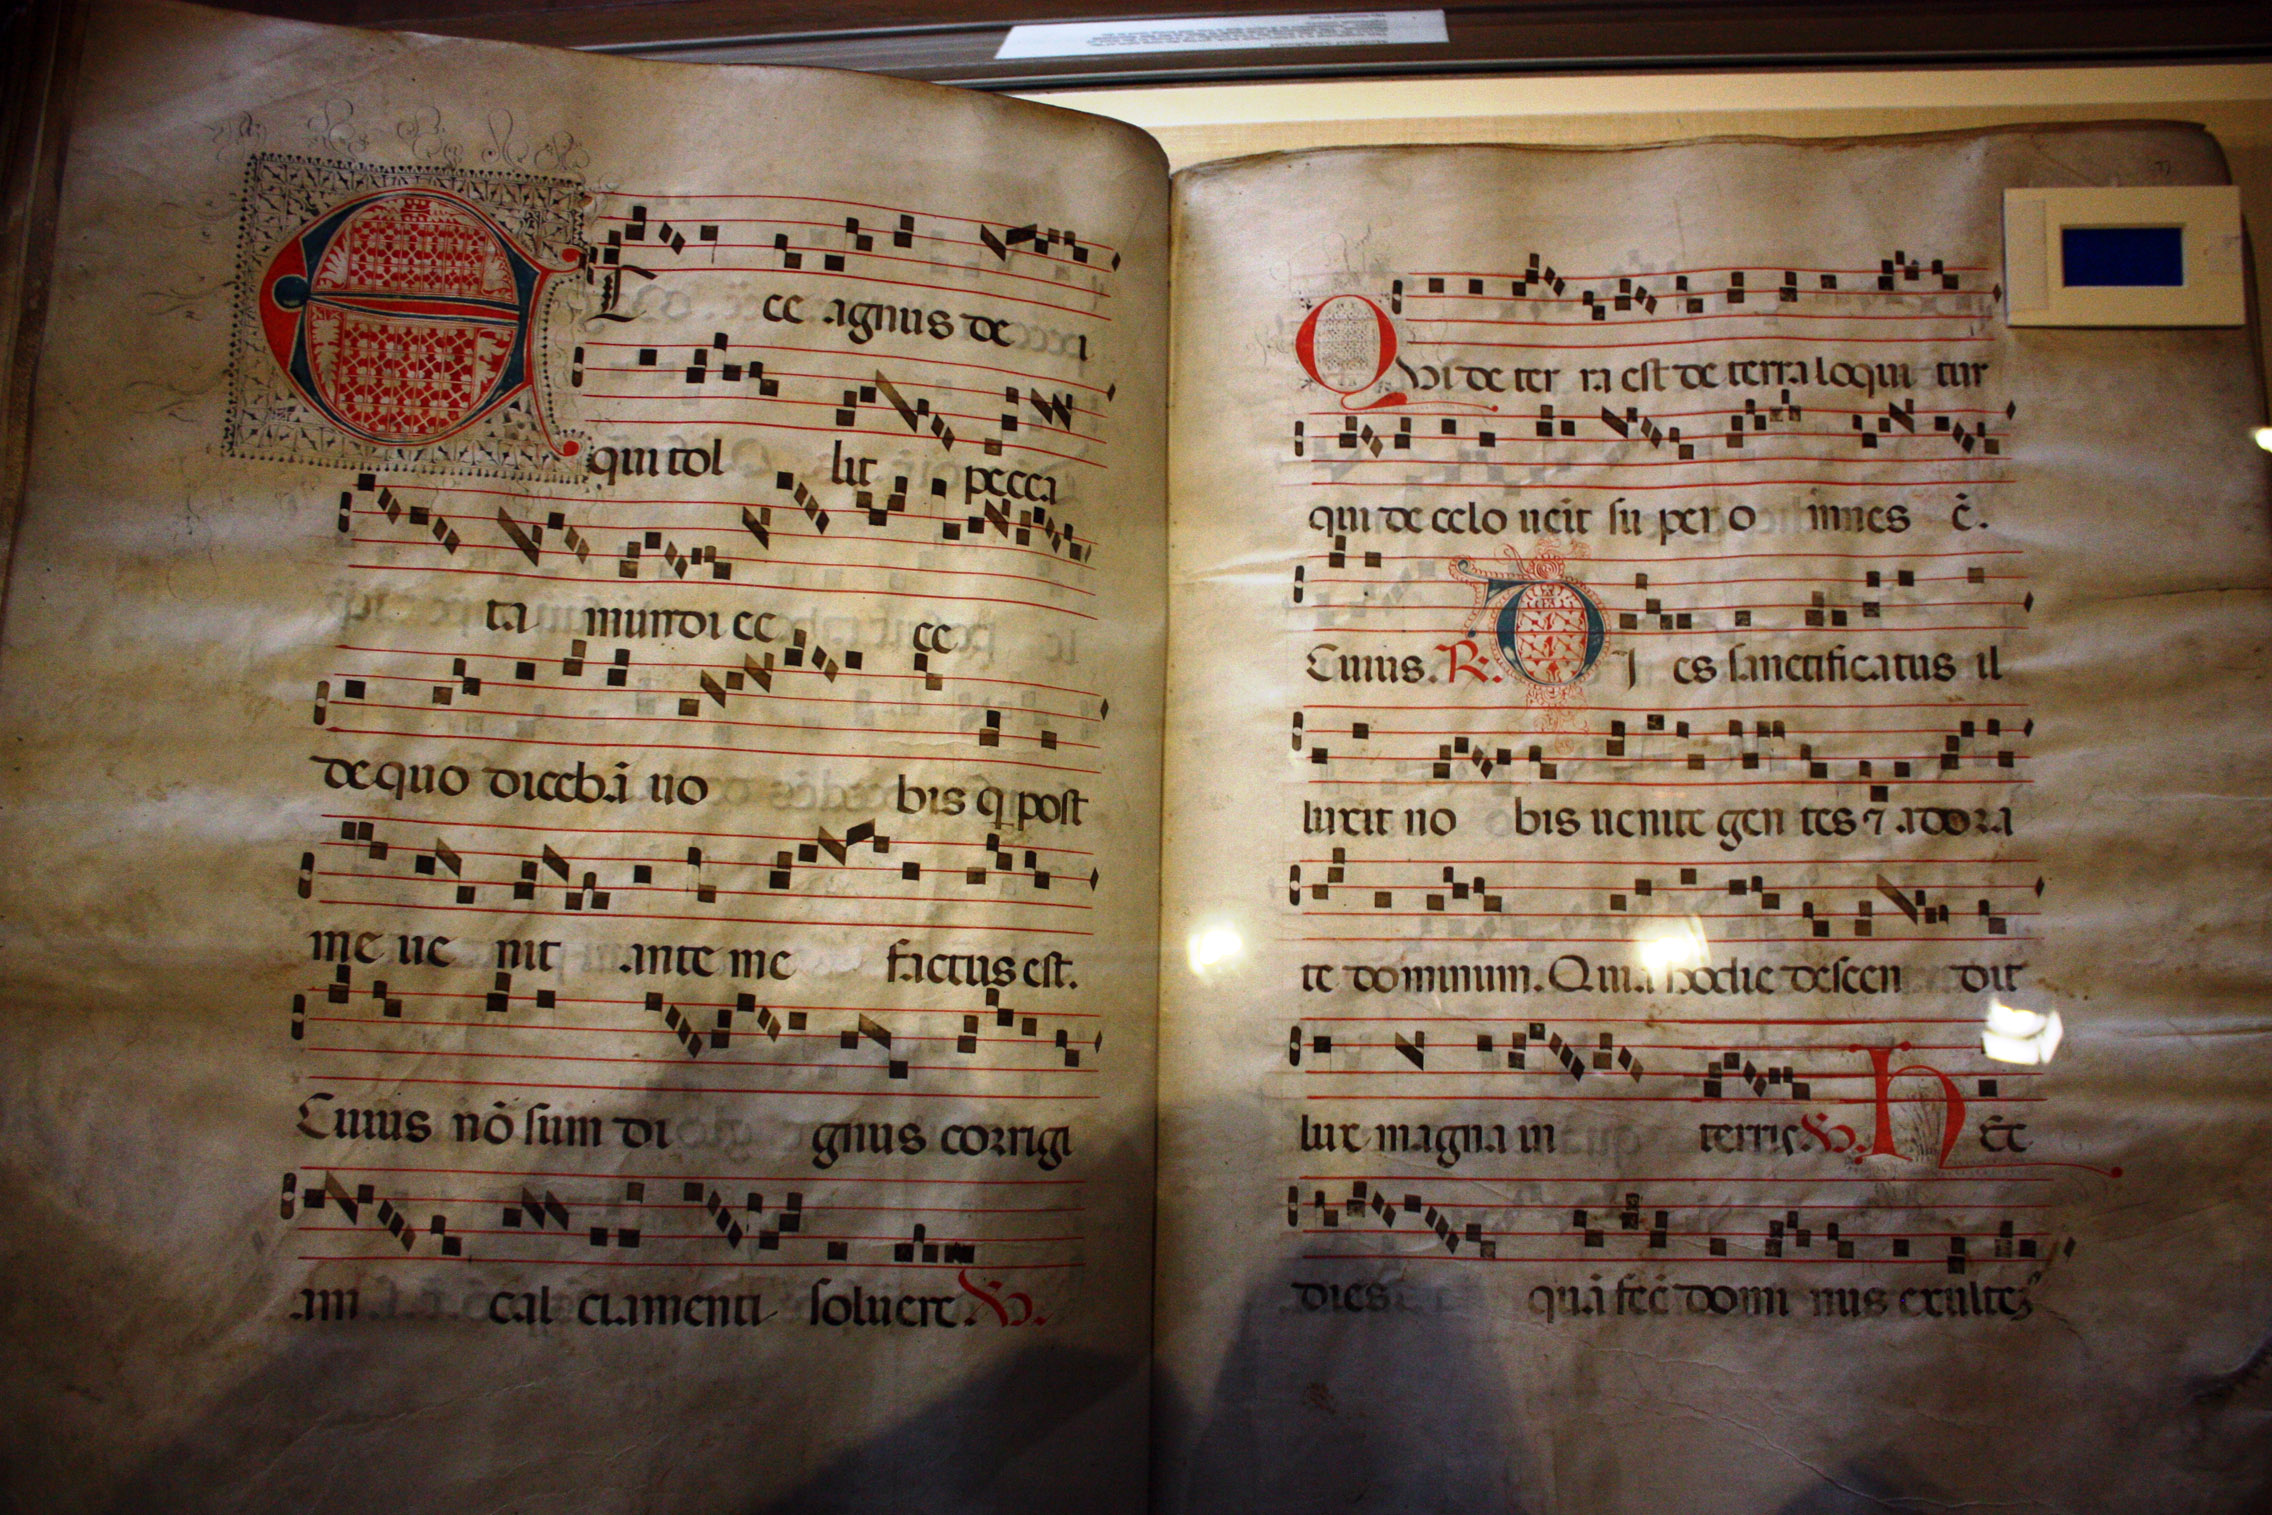 Ecce agnus de i
qui tol lit pecca
ta mundi ec ce
de quo dicebā uo bis q post
me ue nit ante me factus est.
Cuius nō sum di gnus corrigi
am cal ciamenti soluere. V.
Qui de ter ra est de terra loqui tur
qui de celo ueit su per o mnes ē.
Cuius. R. Di es sanctificatus il
luxit no bis uenite gen tes ⁊ adora
te dominum. Quia hodie descen dit
lux magna in terris V. Hec
dies quā fec domi nus exulte